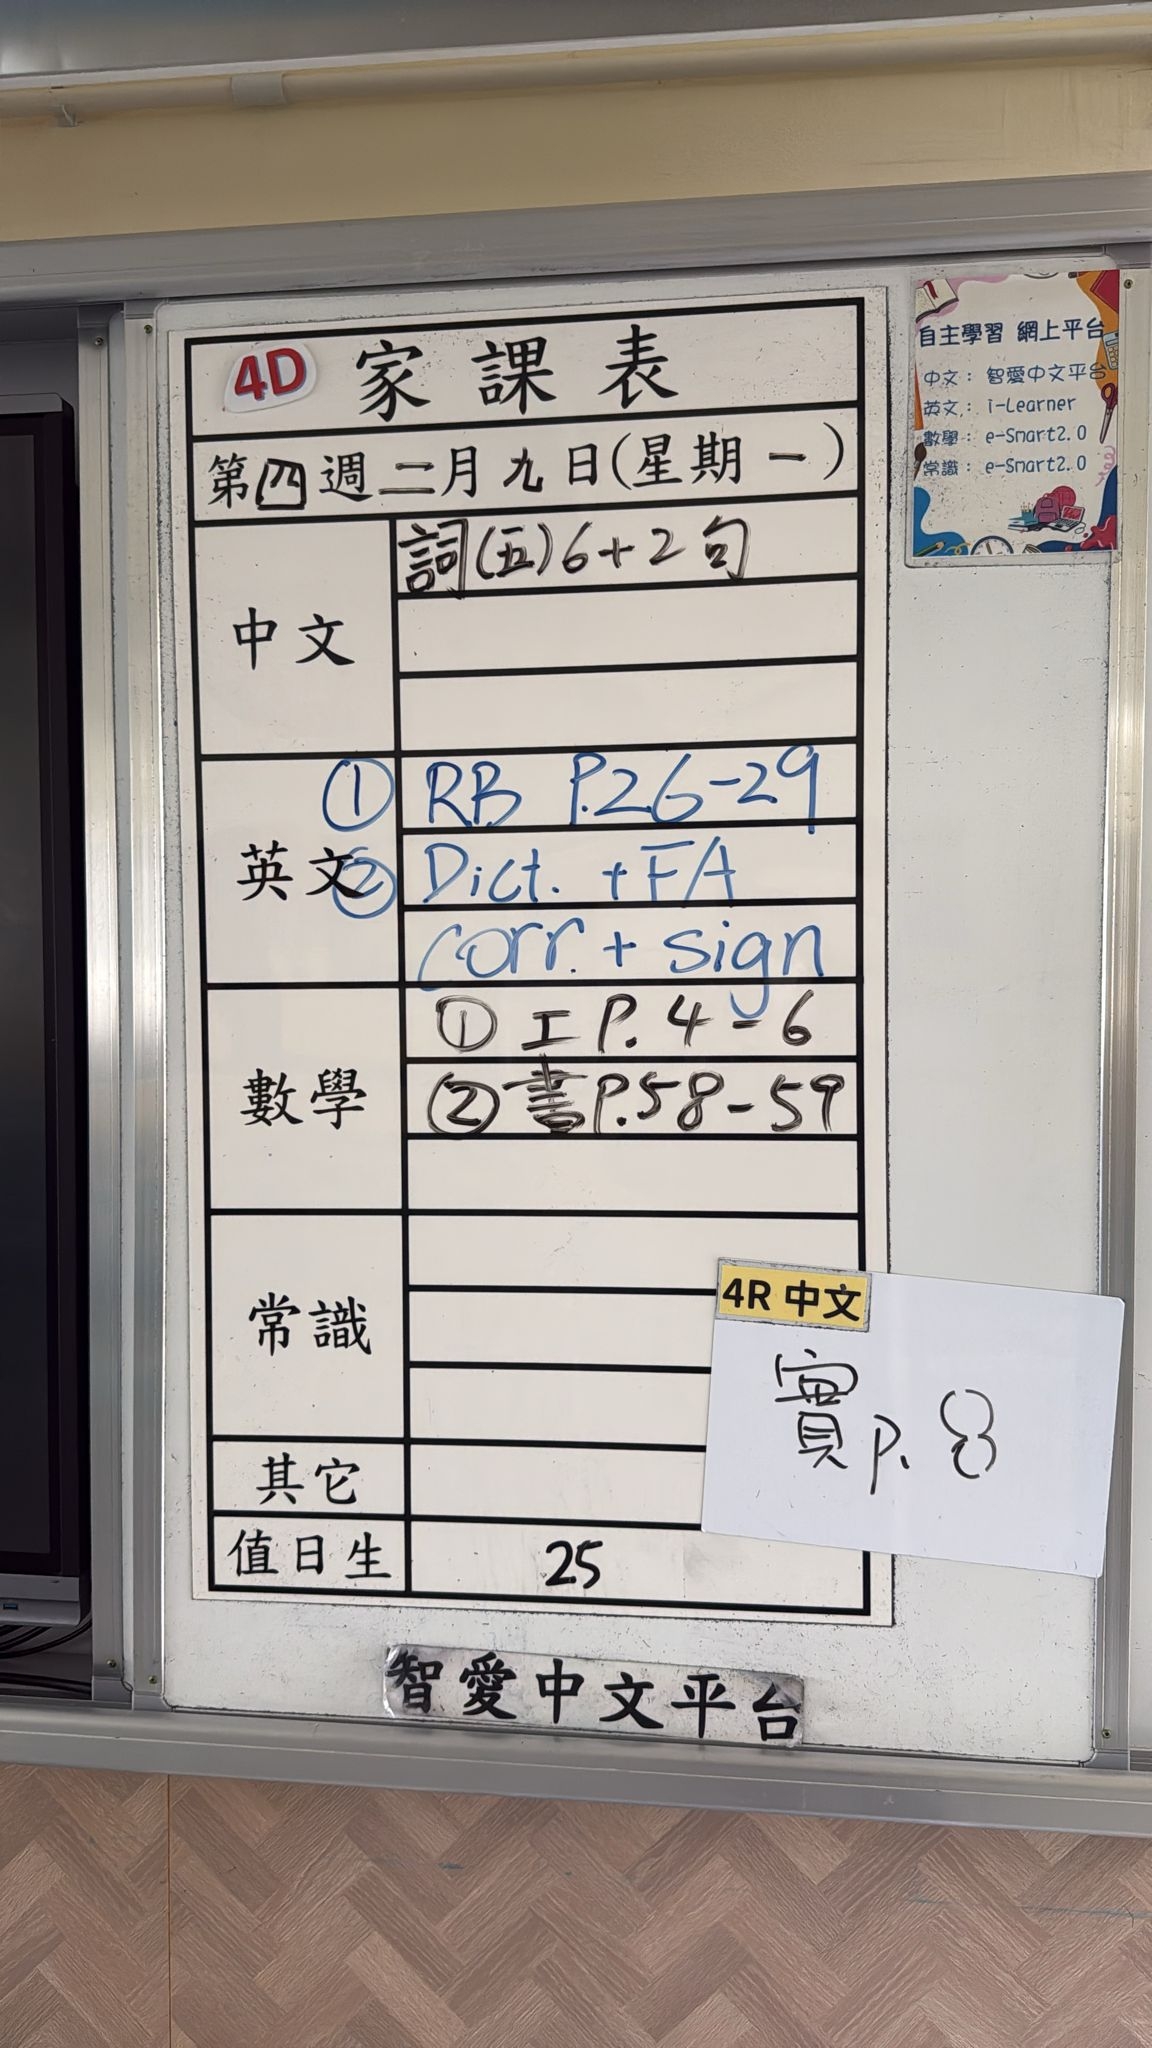 4D 家課表
第四週二月九日(星期一)
中文
詞(五)6+2句
英文
① RB P.26-29
② Dict. + FA
corr. + sign
數學
① 工 P. 4-6
② 書 P.58-59
常識
其它
值日生
25
4R 中文
實 P. 8
智愛中文平台
自主學習 網上平台
中文: 智愛中文平台
英文: i-Learner
數學: e-Smart2.0
常識: e-Smart2.0